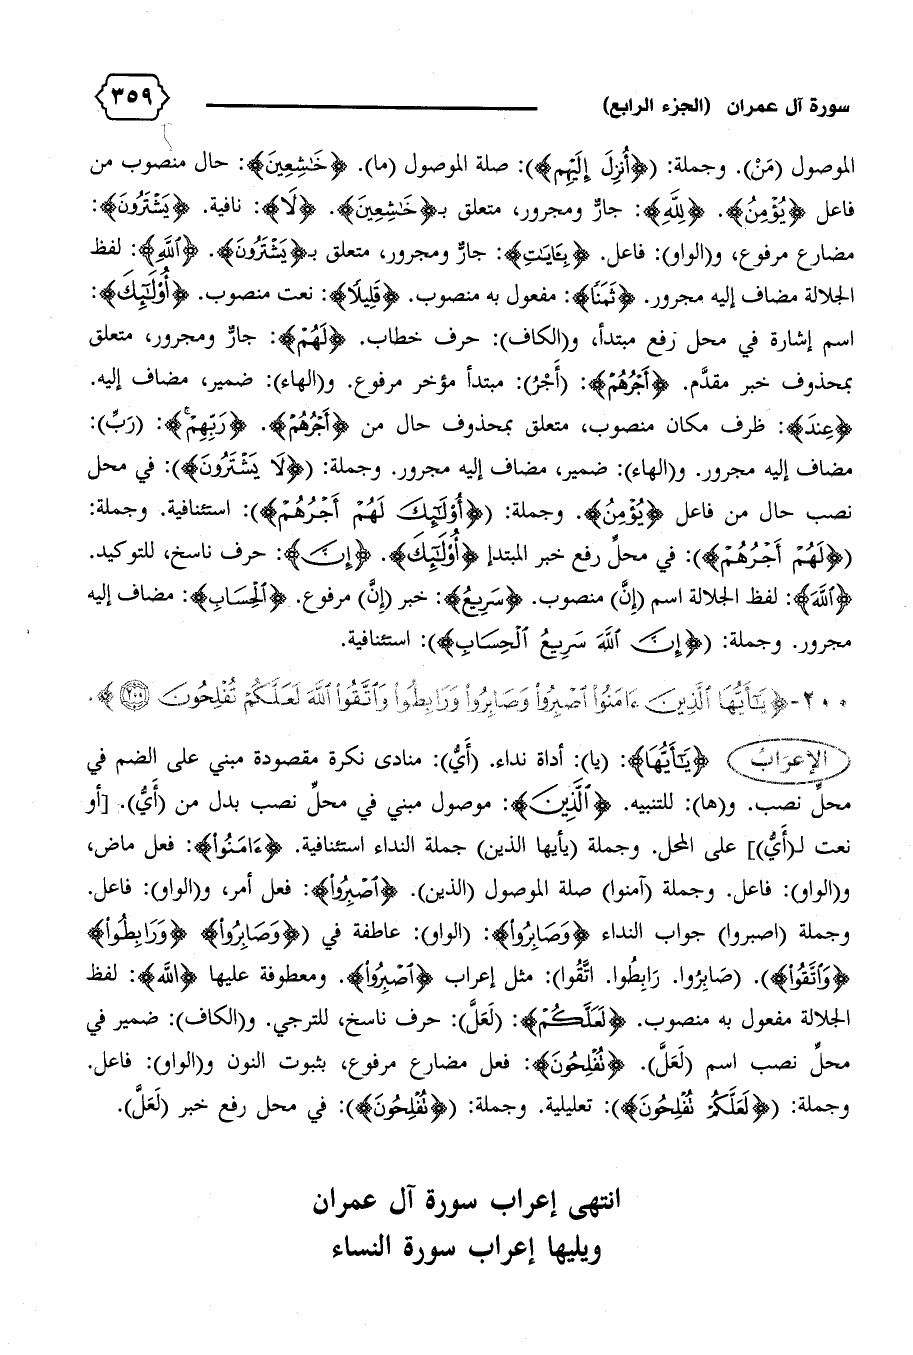 سورة آل عمران (الجزء الرابع) ٣٥٩
الموصول (مَنْ). وجملة: (﴿أُنزِلَ إِلَيْهِمْ﴾): صلة الموصول (ما). ﴿خَٰشِعِينَ﴾: حال منصوب من
فاعل ﴿يُؤْمِنُ﴾. ﴿لِلَّهِ﴾: جارٌّ ومجرور، متعلق بـ﴿خَٰشِعِينَ﴾. ﴿لَا﴾: نافية. ﴿يَشْتَرُونَ﴾:
مضارع مرفوع، و(الواو): فاعل. ﴿بِـَٔايَٰتِ﴾: جارٌّ ومجرور، متعلق بـ﴿يَشْتَرُونَ﴾. ﴿ٱللَّهِ﴾: لفظ
الجلالة مضاف إليه مجرور. ﴿ثَمَنًا﴾: مفعول به منصوب. ﴿قَلِيلًا﴾: نعت منصوب. ﴿أُوْلَٰٓئِكَ﴾:
اسم إشارة في محل رفع مبتدأ، و(الكاف): حرف خطاب. ﴿لَهُمْ﴾: جارٌّ ومجرور، متعلق
بمحذوف خبر مقدَّم. ﴿أَجْرُهُمْ﴾: (أَجْرُ): مبتدأ مؤخر مرفوع. و(الهاء): ضمير، مضاف إليه.
﴿عِندَ﴾: ظرف مكان منصوب، متعلق بمحذوف حال من ﴿أَجْرُهُمْ﴾. ﴿رَبِّهِمْ﴾: (رَبِّ):
مضاف إليه مجرور. و(الهاء): ضمير، مضاف إليه مجرور. وجملة: (﴿لَا يَشْتَرُونَ﴾): في محل
نصب حال من فاعل ﴿يُؤْمِنُ﴾. وجملة: (﴿أُوْلَٰٓئِكَ لَهُمْ أَجْرُهُمْ﴾): استئنافية. وجملة:
(﴿لَهُمْ أَجْرُهُمْ﴾): في محلِّ رفع خبر المبتدإ ﴿أُوْلَٰٓئِكَ﴾. ﴿إِنَّ﴾: حرف ناسخ، للتوكيد.
﴿ٱللَّهَ﴾: لفظ الجلالة اسم (إنَّ) منصوب. ﴿سَرِيعُ﴾: خبر (إنَّ) مرفوع. ﴿ٱلْحِسَابِ﴾: مضاف إليه
مجرور. وجملة: (﴿إِنَّ ٱللَّهَ سَرِيعُ ٱلْحِسَابِ﴾): استئنافية.
٢٠٠-﴿يَٰٓأَيُّهَا ٱلَّذِينَ ءَامَنُوا۟ ٱصْبِرُوا۟ وَصَابِرُوا۟ وَرَابِطُوا۟ وَٱتَّقُوا۟ ٱللَّهَ لَعَلَّكُمْ تُفْلِحُونَ ٢٠٠﴾.
الإعراب ﴿يَٰٓأَيُّهَا﴾: (يا): أداة نداء. (أَيُّ): منادى نكرة مقصودة مبني على الضم في
محلِّ نصب. و(ها): للتنبيه. ﴿ٱلَّذِينَ﴾: موصول مبني في محلِّ نصب بدل من (أَيُّ). [أو
نعت لـ(أَيُّ)] على المحل. وجملة (يأيها الذين) جملة النداء استئنافية. ﴿ءَامَنُوا۟﴾: فعل ماض،
و(الواو): فاعل. وجملة (آمنوا) صلة الموصول (الذين). ﴿ٱصْبِرُوا۟﴾: فعل أمر، و(الواو): فاعل.
وجملة (اصبروا) جواب النداء ﴿وَصَابِرُوا۟﴾: (الواو): عاطفة في (﴿وَصَابِرُوا۟﴾ ﴿وَرَابِطُوا۟﴾
﴿وَٱتَّقُوا۟﴾). (صَابِرُوا. رَابِطُوا. اتَّقُوا): مثل إعراب ﴿ٱصْبِرُوا۟﴾. ومعطوفة عليها ﴿اللَّه﴾: لفظ
الجلالة مفعول به منصوب. ﴿لَعَلَّكُمْ﴾: (لَعَلَّ): حرف ناسخ، للترجي. و(الكاف): ضمير في
محلِّ نصب اسم (لَعَلَّ). ﴿تُفْلِحُونَ﴾: فعل مضارع مرفوع، بثبوت النون و(الواو): فاعل.
وجملة: (﴿لَعَلَّكُمْ تُفْلِحُونَ﴾): تعليلية. وجملة: (﴿تُفْلِحُونَ﴾): في محل رفع خبر (لَعَلَّ).
انتهى إعراب سورة آل عمران
ويليها إعراب سورة النساء